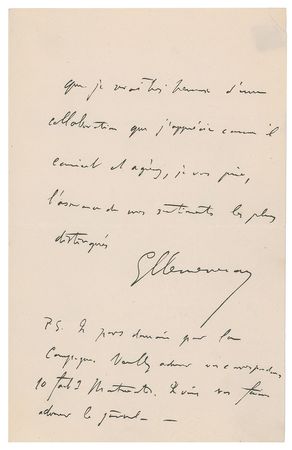 que je serais très heureux d'une
collaboration que j'apprécie comme il
convient et agréez, je vous prie,
l'assurance de mes sentiments les plus
distingués
GClemenceau
P.S. Je pars demain pour la
Campagne. Veuillez adresser
10 Montmartre. Je vais vous faire
adresser le journal